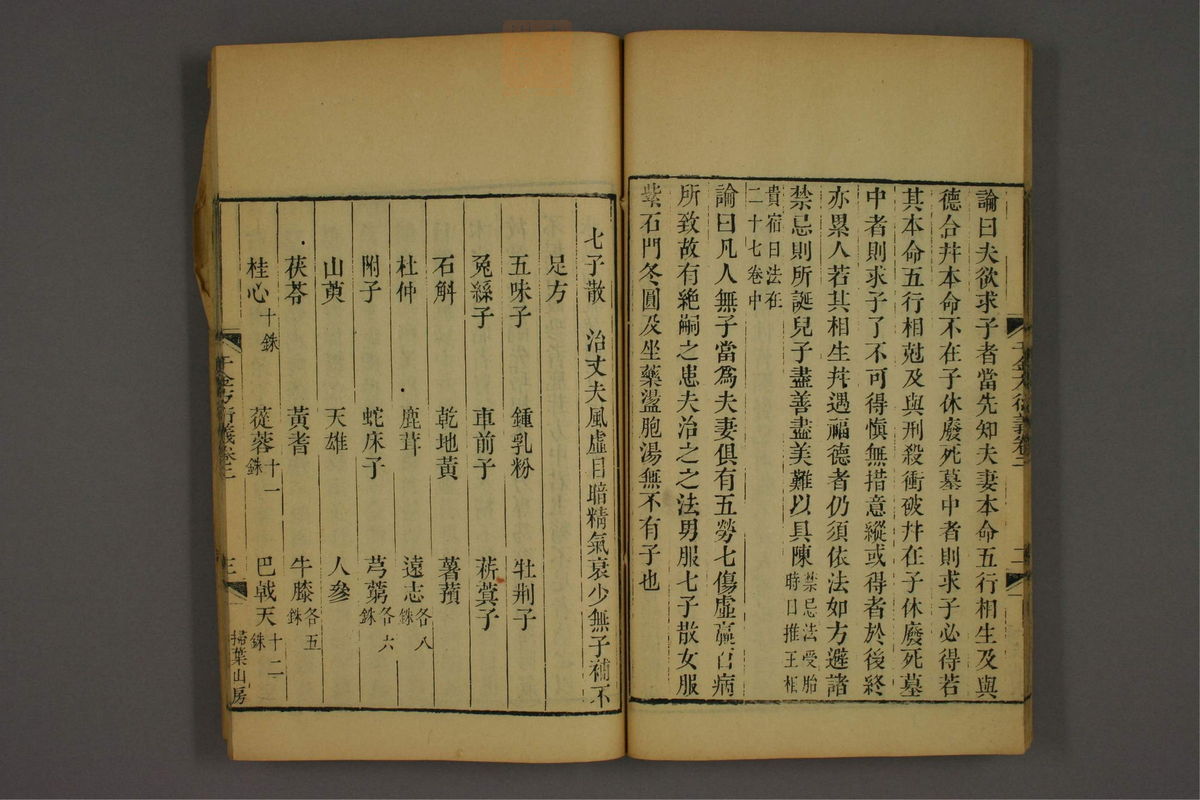 論曰夫欲求子者當先知夫妻本命五行相生及與
德合幷本命不在子休廢死墓中者則求子必得若
其本命五行相尅及與刑殺衝破幷在子休廢死墓
中者則求子了不可得愼無措意縱或得者於後終
亦累人若其相生幷遇福德者仍須依法如方避諸
禁忌則所誕兒子盡善盡美難以具陳禁忌法受胎時日推王相
貴宿日法在二十七卷中
論曰凡人無子當爲夫妻俱有五勞七傷虛羸百病
所致故有絶嗣之患夫治之之法男服七子散女服
紫石門冬圓及坐藥盪胞湯無不有子也
千金方衍義卷二 二
七子散 治丈夫風虛目暗精氣衰少無子補不
足方
五味子 鍾乳粉 牡荆子
兔絲子 車前子 菥蓂子
石斛 乾地黃 薯蕷
杜仲 鹿茸 遠志各八銖
附子 蛇床子 芎藭各六銖
山萸 天雄 人參
茯苓 黃耆 牛膝各五銖
桂心十銖 蓯蓉十一銖 巴戟天十二銖
千金方衍義卷二 三
掃葉山房